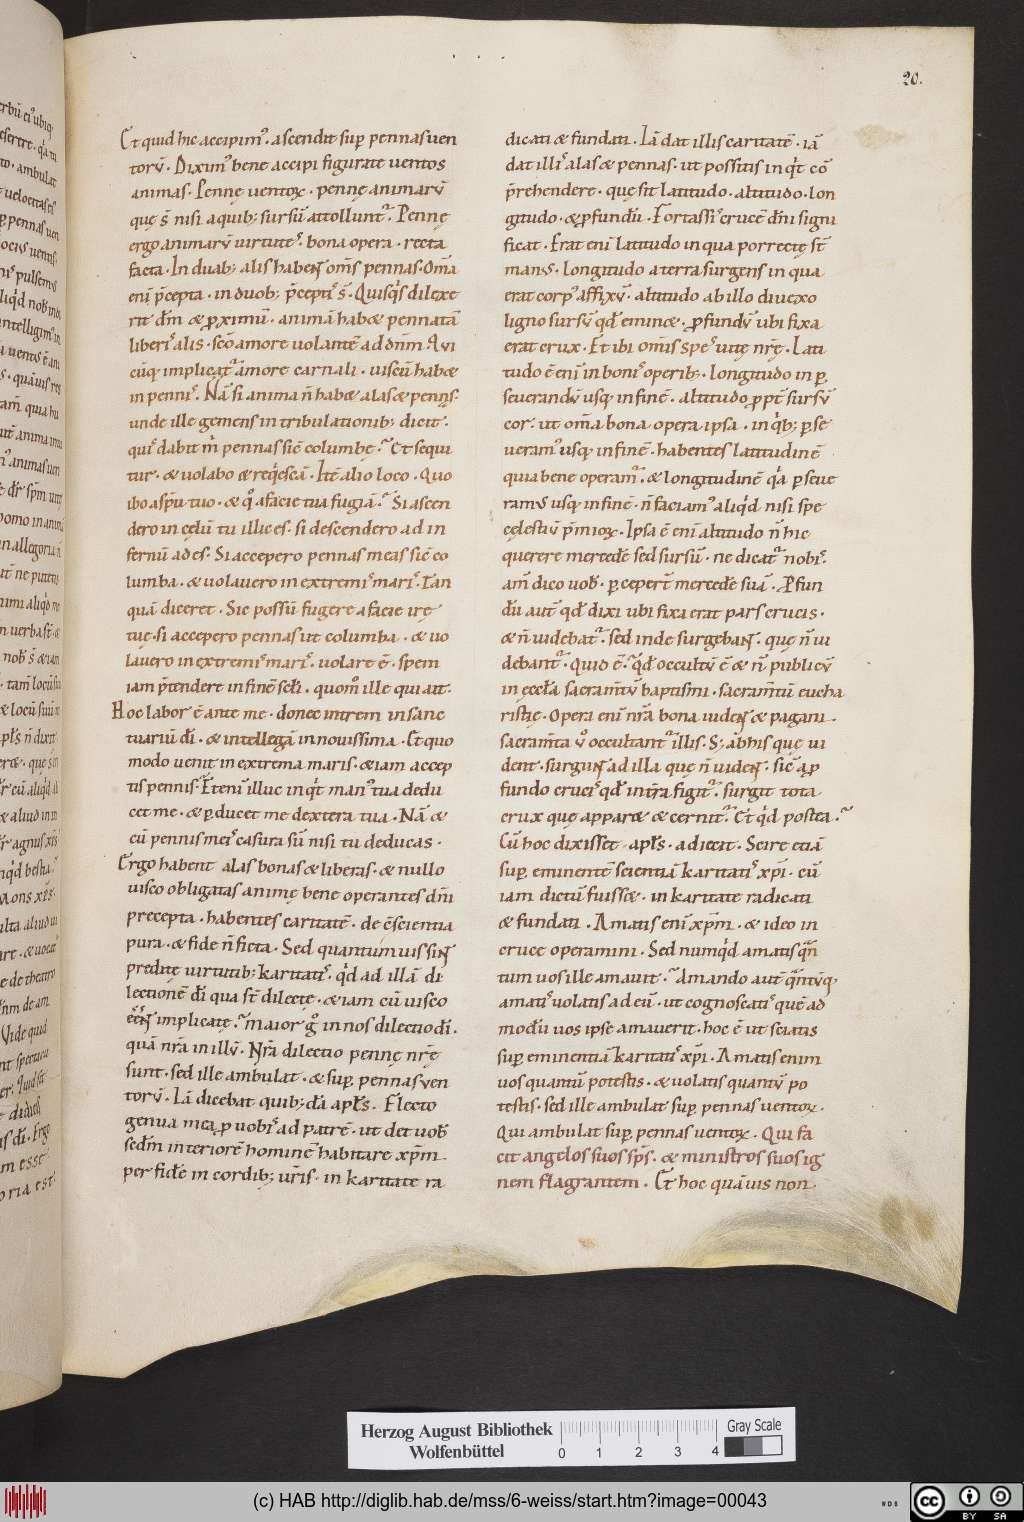 20.
Et quid hic accipimꝰ. ascendit sup̱ pennas uen
torū. Diximꝰ bene accipi figurate uentos
animas. Pennę uentoꝝ. pennę animarū
quę s̄ nisi a quib; sursū attollunt᷑. Pennę
ergo animarū uirtutes. bona opera. recta
facta. In duab; alis habent om̄s pennas. om̄a
eni p̄cepta. in duob; p̄ceptis s̄. Quisq̇s dilexe
rit dm̄ & ꝓximū. animā hab& pennatā
liberis alis. sc̄o amore uolantē ad dn̄m. Qui
cūq; implicat᷑ amore carnali. uiscū hab&
in pennis. Nā si anima n̄ hab& alas & pennas.
unde ille gemens in tribulationib; dicit.
quis dabit m̄ pennas sic̄ columbę? Et sequi
tur. & uolabo & req̇escā. Itē alio loco. Quo
ibo a sp̄u tuo. & q̊ a facie tua fugiā? Si ascen
dero in cęlū tu illic es. si descendero ad in
fernū ades. Si accepero pennas meas sic̄ co
lumba. & uolauero in extremis maris. Tan
quā diceret. Sic possū fugere a facie irę
tuę. si accepero pennas ut columba. & uo
lauero in extremis maris. uolare ē. spem
iam p̄tendere in finē sc̄li. quom̊ ille qui ait.
Hoc labor ē ante me. donec intrem in sanc
tuariū dī. & intellegā in nouissima. Et quo
modo uenit in extrema maris. & iam accep
tis pennis? Eteni illuc inq̇t manꝰ tua dedu
cet me. & ꝑducet me dextera tua. Nā &
cū pennis meis casura sū nisi tu deducas.
Ergo habent alas bonas & liberas. & nullo
uisco obligatas animę bene operantes dn̄i
precepta. habentes caritatē. de c̄scientia
pura. & fide n̄ ficta. Sed quantumuis sint
preditę uirtutib; karitatis. q̇d ad illā di
lectionē dī qua st̄ dilectę. & iam cū uisco
eēnt implicatę? Maior g̊ in nos dilectio dī.
quā nr̄a in illū. Nr̄a dilectio pennę nr̄ę
sunt. sed ille ambulat. & sup̱ pennas uen
torū. Iā dicebat quib;dā apl̄s. Flecto
genua mea ꝓ uobis ad patrē. ut det uob̄
sed̄m interiorē hominē habitare xp̄m
per fidē in cordib; ur̄is. in karitate ra
dicati & fundati. Iā dat illis caritatē. iā
dat illis alas & pennas. ut possitis inq̇t cō
p̄rehendere. quę sit latitudo. altitudo. lon
gitudo. & ꝓfundū. Fortassis crucē dn̄i signi
ficat. Erat eni latitudo in qua porrectę st̄
manꝰ. longitudo a terra surgens in qua
erat corpꝰ affixū. altitudo ab illo diuexo
ligno sursū qd̄ emin&. ꝓfundū ubi fixa
erat crux. Et ibi om̄is spes uitę nr̄ę. Lati
tudo ē eni in bonis operib;. longitudo in ꝑ
seuerandū usq; in finē. altitudo ꝓpt̄ sursū
cor. ut om̄a bona opera ipsa. in q̇b; ꝑse
ueramꝰ usq; in finē. habentes latitudinē
quia bene operam᷑. & longitudinē q̇a ꝑseue
ramꝰ usq; in finē. n̄ faciamꝰ aliq̇d nisi spe
cęlestiū p̄mioꝝ. Ipsa ē eni altitudo n̄ hic
querere mercedē sed sursū. ne dicat᷑ nobis.
am̄ dico uob̄. ꝑceper̄t mercedē suā. Ꝓfun
dū aut̄ qd̄ dixi ubi fixa erat pars crucis.
& n̄ uidebat᷑. sed inde surgebant. quę n̄ ui
debant᷑. Quid ē? qd̄ occultū ē & n̄ publicū
in ęccl̄a sacram̄tū baptismi. sacram̄tū eucha
ristię. Opera eni nr̄a bona uident & pagani.
sacram̄ta ṽ occultant᷑ illis. S; ab his quę ui
dent. surgunt ad illa quę n̄ uident. sic̄ a ꝓ
fundo crucis qd̄ in tr̄a figit᷑. surgit tota
crux quę appar& & cernit᷑. Et q̇d postea?
Cū hoc dixisset apl̄s. adiecit. Scire etiā
sup̱ eminentē scientiā karitatis xp̄i. cū
iam dictū fuiss&. in karitate radicati
& fundati. Amatis eni xp̄m. & ideo in
cruce operamini. Sed numq̇d amatis q̄n
tum uos ille amauit? Amando aut̄ q̄ntūq;
amatis uolatis ad eū. ut cognoscatis quē ad
modū uos ipse amauerit. hoc ē ut sciatis
sup̱ eminentiā karitatis xp̄i. Amatis enim
uos quantū potestis. & uolatis quantū po
testis. sed ille ambulat sup̱ pennas uentoꝝ.
Qui ambulat sup̱ pennas uentoꝝ. Qui fa
cit angelos suos sp̄s. & ministros suos ig
nem flagrantem. Et hoc quāuis non
Herzog August Bibliothek
Wolfenbüttel
0 1 2 3 4
Gray Scale
(c) HAB http://diglib.hab.de/mss/6-weiss/start.htm?image=00043
WDB
cc BY SA